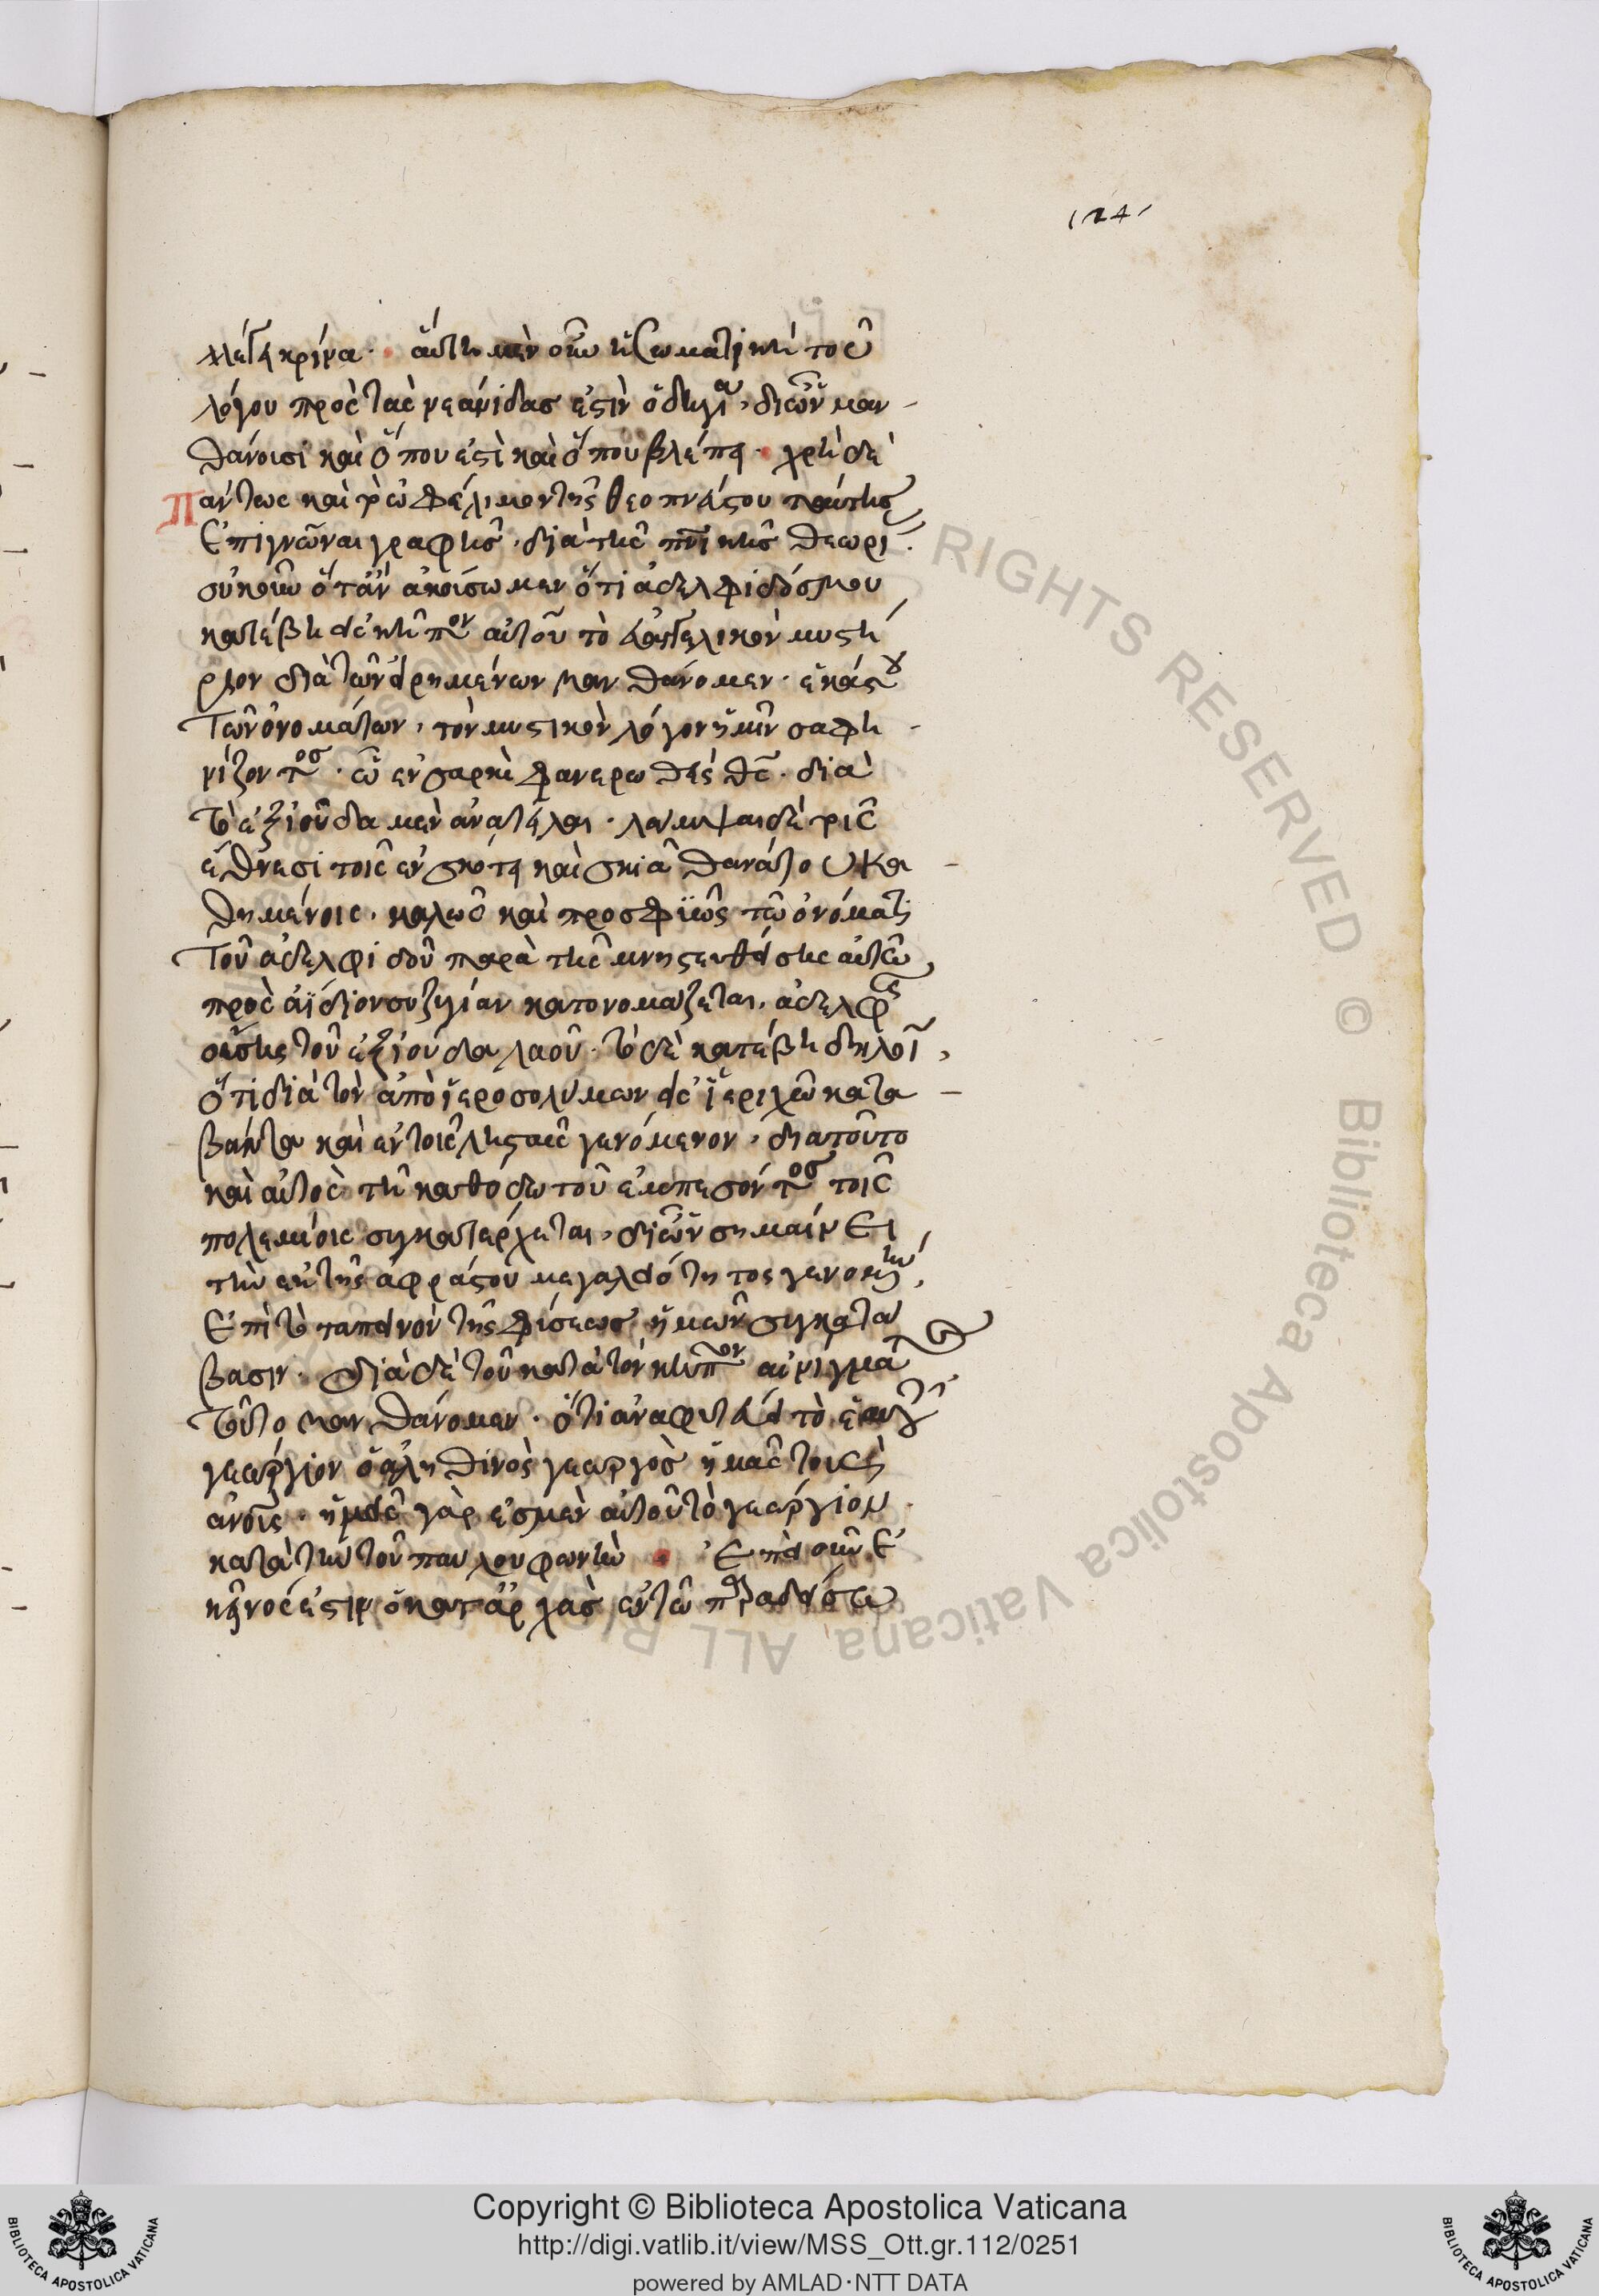 124
λέγει κρίνα · αὕτη μὲν οὖν ἡ σωματικὴ τοῦ
λόγου πρὸς τὰς νεάνιδας ἐστὶν ὁδηγία, δι' ὧν μαν-
θάνουσι καὶ ὅπου ἐστὶ καὶ ὅπου βλέπει · χρὴ δὲ
πάντως καὶ τὸ ὠφέλιμον τῆς θεοπνεύστου ταύτης
ἐπιγνῶναι γραφῆς, διὰ τῆς πνικῆς θεωρί
οὐκοῦν ὅταν ἀκούσωμεν ὅτι ἀδελφιδός μου
κατέβη εἰς κῆπον αὐτοῦ τὸ εὐαγγελικὸν μυστή
ριον διὰ τῶν εἰρημένων μανθάνομεν · ἑκάστου
τῶν ὀνομάτων, τὸν μυστικὸν λόγον ἡμῖν σαφη-
νίζοντος · ὁ ἐν σαρκὶ φανερωθεὶς θς · διὰ
τὸ ἐξ ἰούδα μὲν ἀνατεῖλαι · λάμψαι δὲ τοῖς
ἔθνεσι τοῖς ἐν σκότει καὶ σκιᾷ θανάτου κα-
θημένοις · καλῶς καὶ προσφυῶς τῷ ὀνόματι
τοῦ ἀδελφιδοῦ παρὰ τῆς μνηστευθείσης αὐτῷ
πρὸς ἀΐδιον συζυγίαν κατονομάζεται, ἀδελφῆς
οὔσης τοῦ ἐξ ἰούδα λαοῦ · τὸ δὲ κατέβη δηλοῖ,
ὅτι διὰ τὸν ἀπὸ ἱεροσολύμων εἰς ἱεριχὼ κατα-
βάντα καὶ ἐν τοῖς λῃσταῖς γενόμενον, διὰ τοῦτο
καὶ αὐτὸς τῇ καθόδῳ τοῦ ἐμπεσόντος τοῖς
πολεμίοις συγκατέρχεται, δι' ὧν σημαίνει
τὴν ἐκ τῆς ἀφράστου μεγαλειότητος γενομένην,
ἐπὶ τὸ ταπεινὸν τῆς φύσεως ἡμῶν συγκατά
βασιν · διὰ δὲ τοῦ κατὰ τὸν κῆπον αἰνίγματος
τοῦτο μανθάνομεν · ὅτι ἀναφυτεύει τὸ ἑαυτοῦ
γεώργιον ὁ ἀληθινὸς γεωργὸς ἡμᾶς τοὺς
ἀνοὺς · ἡμεῖς γάρ ἐσμεν αὐτοῦ τὸ γεώργιον
κατὰ τὴν τοῦ παύλου φωνὴν · Ἐπεὶ οὖν ἐ
κεῖνός ἐστιν ὁ κατ' ἀρχὰς ἐν τῷ παραδείσῳ
Copyright © Biblioteca Apostolica Vaticana
http://digi.vatlib.it/view/MSS_Ott.gr.112/0251
powered by AMLAD·NTT DATA
BIBLIOTECA APOSTOLICA VATICANA
BIBLIOTECA APOSTOLICA VATICANA
© Biblioteca Apostolica Vaticana ALL RIGHTS RESERVED